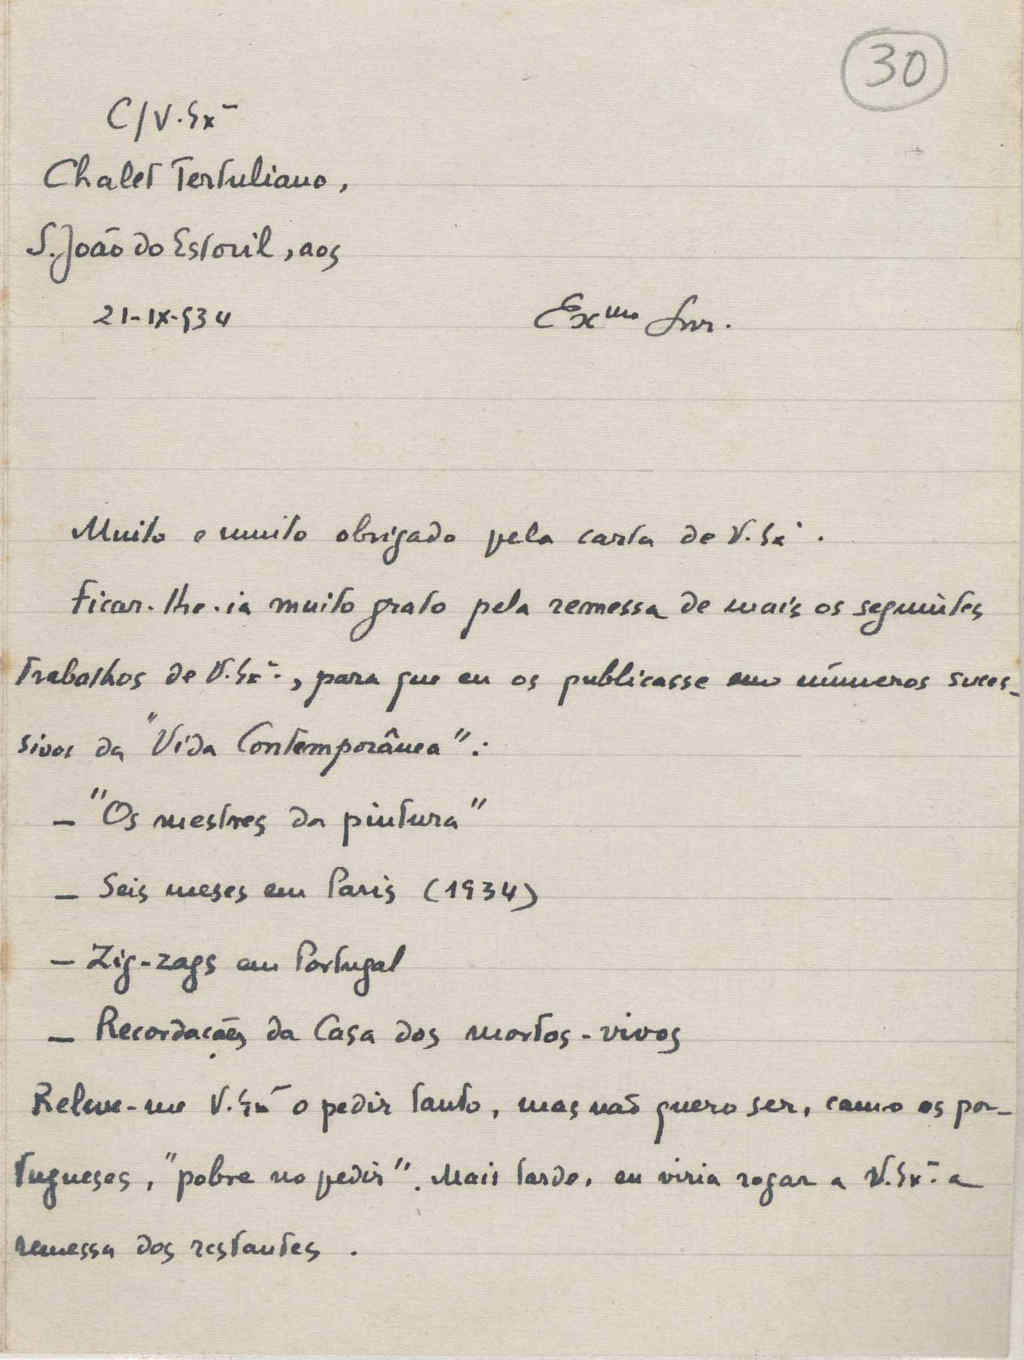 30
C/V. Exª
Chalet Tertuliano,
S. João do Estoril, aos
21-IX-934
Exmo Snr.
Muito e muito obrigado pela carta de V. Exª.
Ficar-lhe-ia muito grato pela remessa de mais os seguintes
trabalhos de V. Exª., para que eu os publicasse em números suces-
sivos da "Vida Contemporânea":
- "Os mestres da pintura"
- Seis meses em Paris (1934)
- Zig-zags em Portugal
- Recordações da Casa dos mortos-vivos
Releve-me V. Exª o pedir tanto, mas não quero ser, como os por-
tugueses, "pobre no pedir". Mais tarde, eu viria rogar a V. Exª. a
remessa dos restantes.